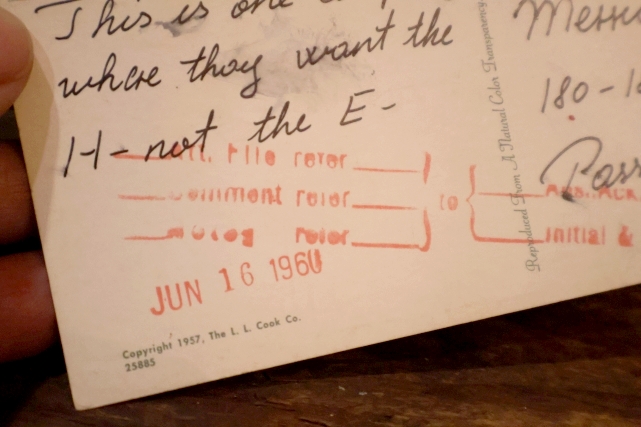 This is one
where they want the
H- not the E-
File refer
comment refer to
refer Initial &
JUN 16 1960
Copyright 1957, The L. L. Cook Co.
25885
Reproduced From A Natural Color Transparency
180-1
Pass